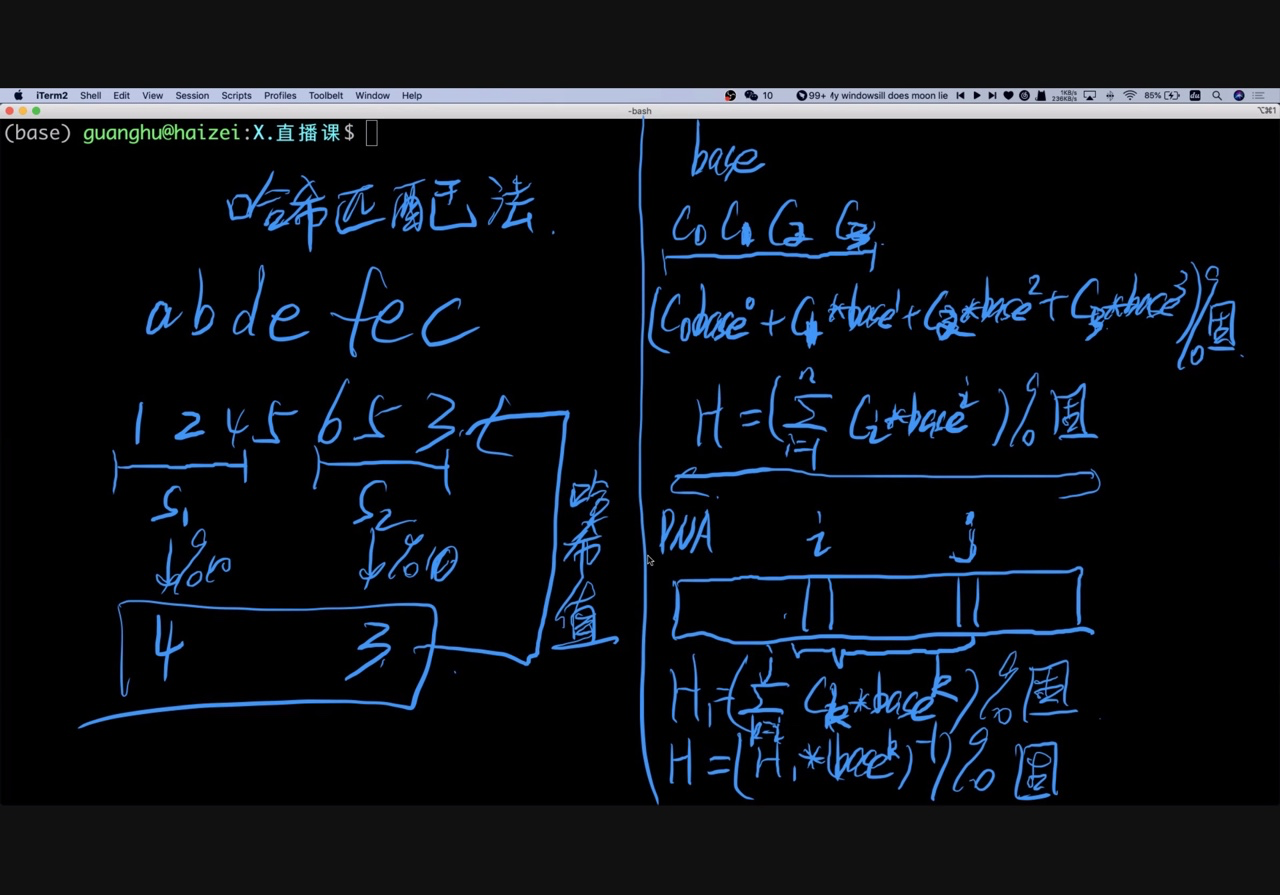 iTerm2 Shell Edit View Session Scripts Profiles Toolbelt Window Help
10 99+ My windowsill does moon lie 1KB/s 236KB/s 85%
-bash ⌥⌘1
(base) guanghu@haizei:X.直播课$
哈希匹配算法.
abdefec
1 2 4 5 6 5 3
S1 S2
%10 %10
4 3
哈希值
base
C0 C1 C2 C3
(C0base^0 + C1*base^1 + C2*base^2 + C3*base^3) %
H = (∑ n i=1 Ci*base^i) %
DNA i j
H1 = (∑ j k=i Ck*base^k) %
H = (H1*(base^k)^-1) %